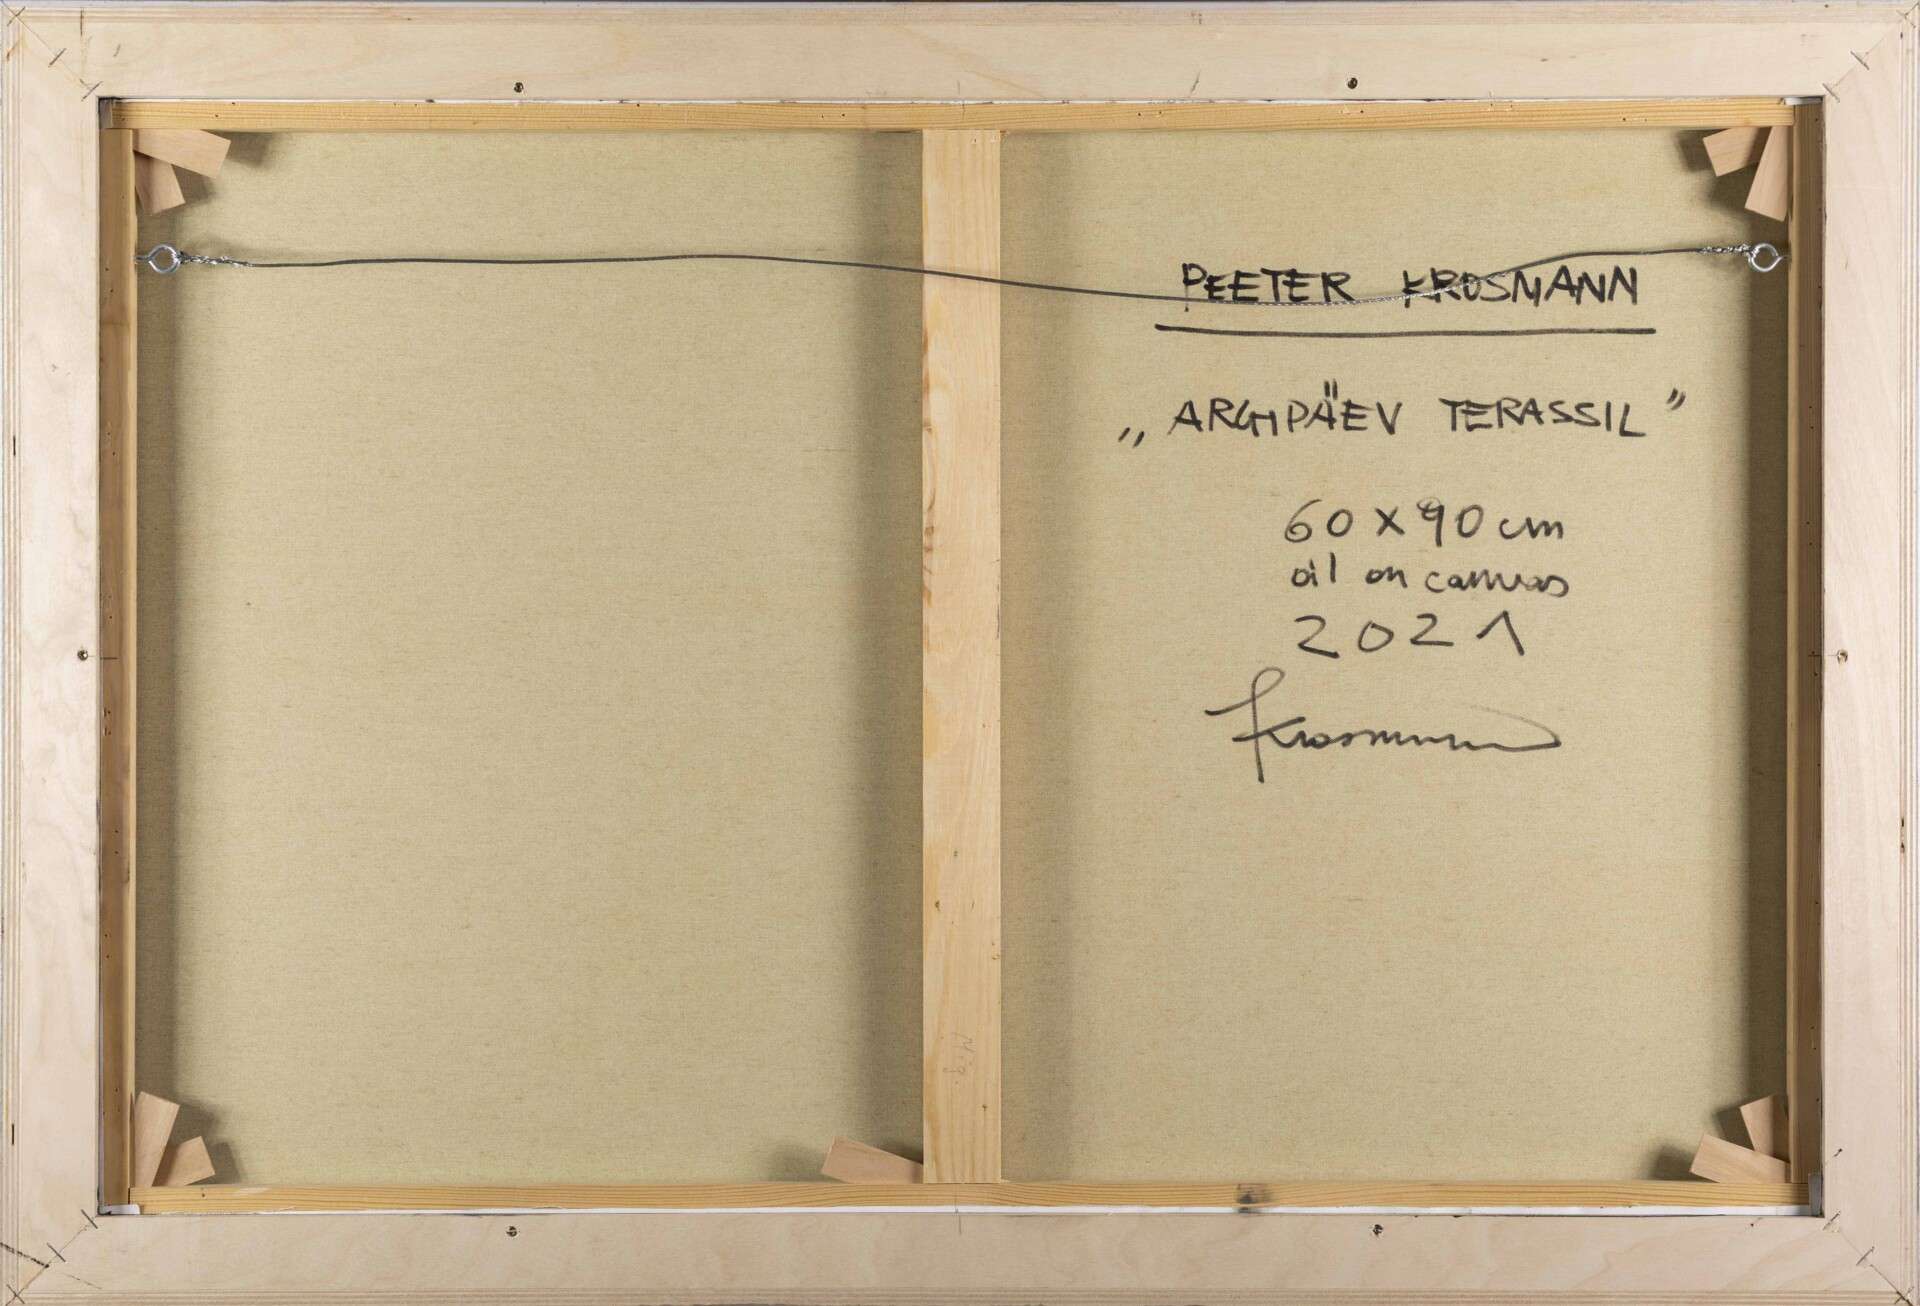 PEETER KROSMANN
„ARGIPÄEV TERASSIL”
60 x 90 cm
oil on canvas
2021
Krosmann